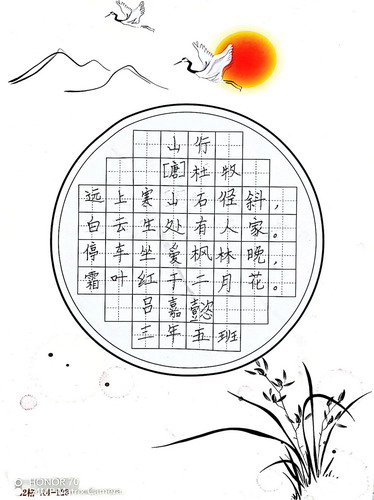 山行
[唐]杜牧
远上寒山石径斜，
白云生处有人家。
停车坐爱枫林晚，
霜叶红于二月花。
吕嘉懿
三年五班
HONOR 70